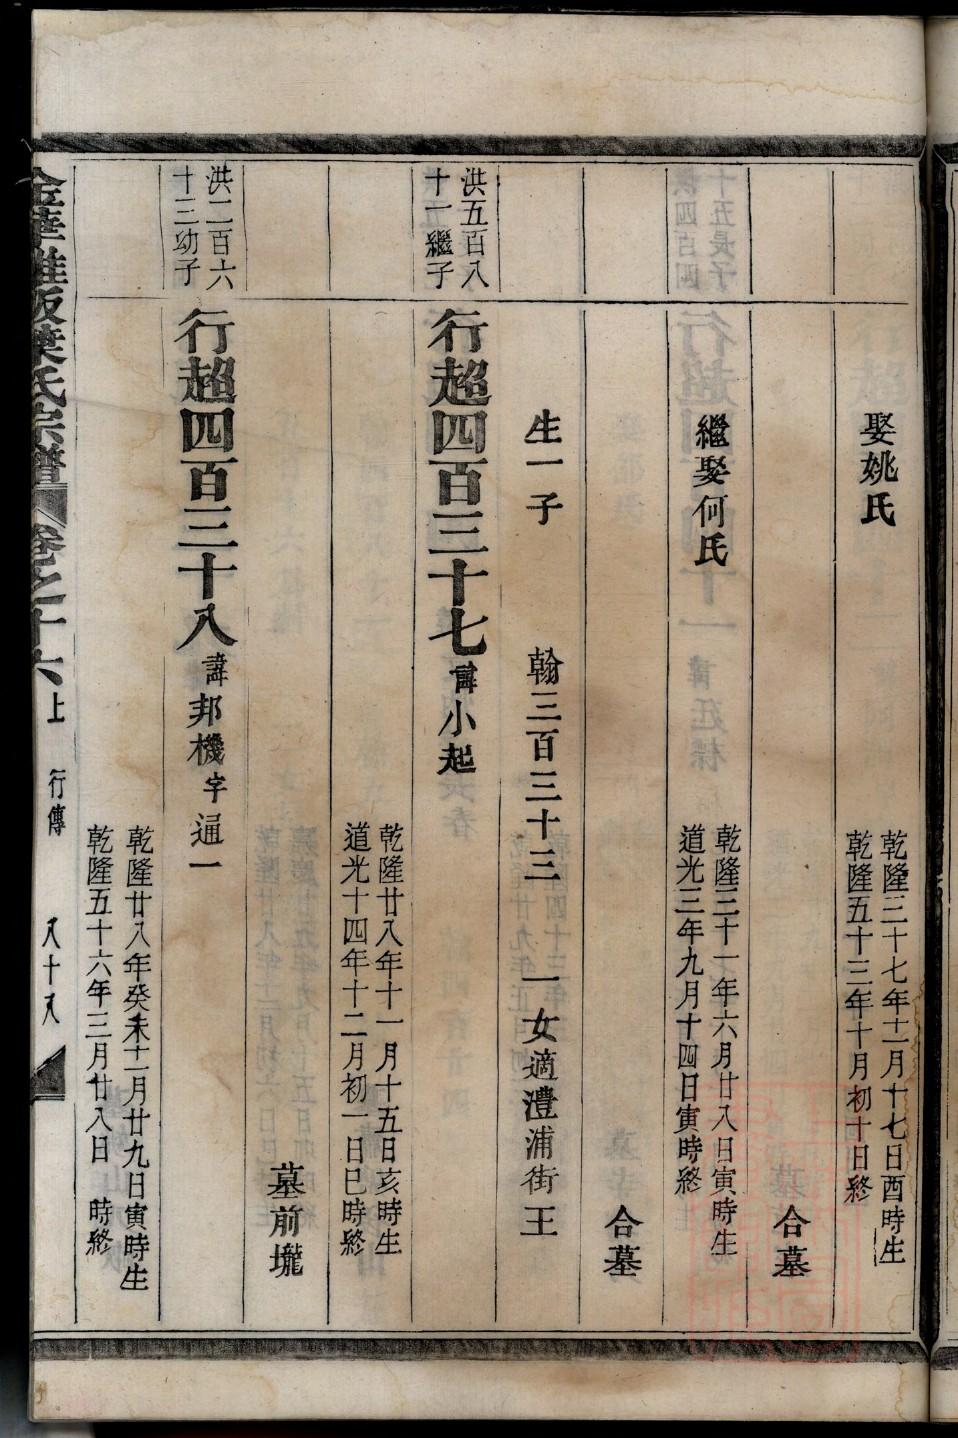 娶姚氏
乾隆三十七年十一月十七日酉時生
乾隆五十三年十月初十日終
合墓
繼娶何氏
乾隆三十一年六月廿八日寅時生
道光三年九月十四日寅時終
合墓
生一子 翰三百三十三 一女適澧浦街王
洪五百八
十一繼子
行超四百三十七諱小起
乾隆廿八年十一月十五日亥時生
道光十四年十二月初一日巳時終
墓前壠
洪二百六
十三幼子
行超四百三十八諱邦機字通一
乾隆廿八年癸未十一月廿九日寅時生
乾隆五十六年三月廿八日 時終
葉氏宗譜 卷之十六上 行傳 八十八